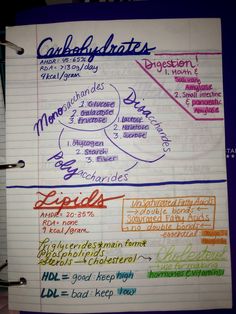 Carbohydrates
AMDR: 45-65%
RDA= >130g/day
4kcal/gram
Digestion!
1. Mouth &
Salivary
Amylase
2. Small intestine
& pancreatic
Amylase
Monosaccharides
1. Glucose
2. Galactose
3. Fructose
Disaccharides
1. Lactose
2. Maltose
3. Sucrose
Polysaccharides
1. Glycogen
2. Starch
3. Fiber
Lipids
AMDR: 20-35%
RDA= none
9 kcal/gram
Unsaturated fatty acids
→ double bonds
Saturated fatty acids
→ no double bonds
essential
Triglycerides *main form*
Phospholipids
Sterols → Cholesterol →
Cholesterol
use for making
hormones & vitamins!
HDL = good · keep high
LDL = bad · keep low